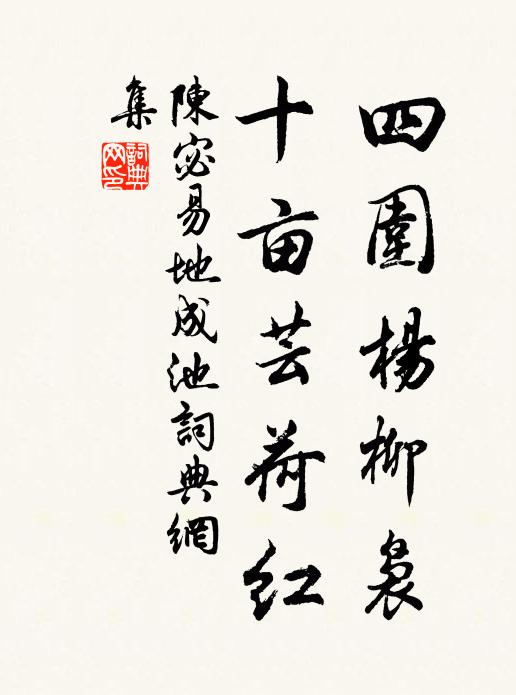 四圍楊柳裊
十亩芸荷红
陳宓易地成池詞典網
集
詞典
网印